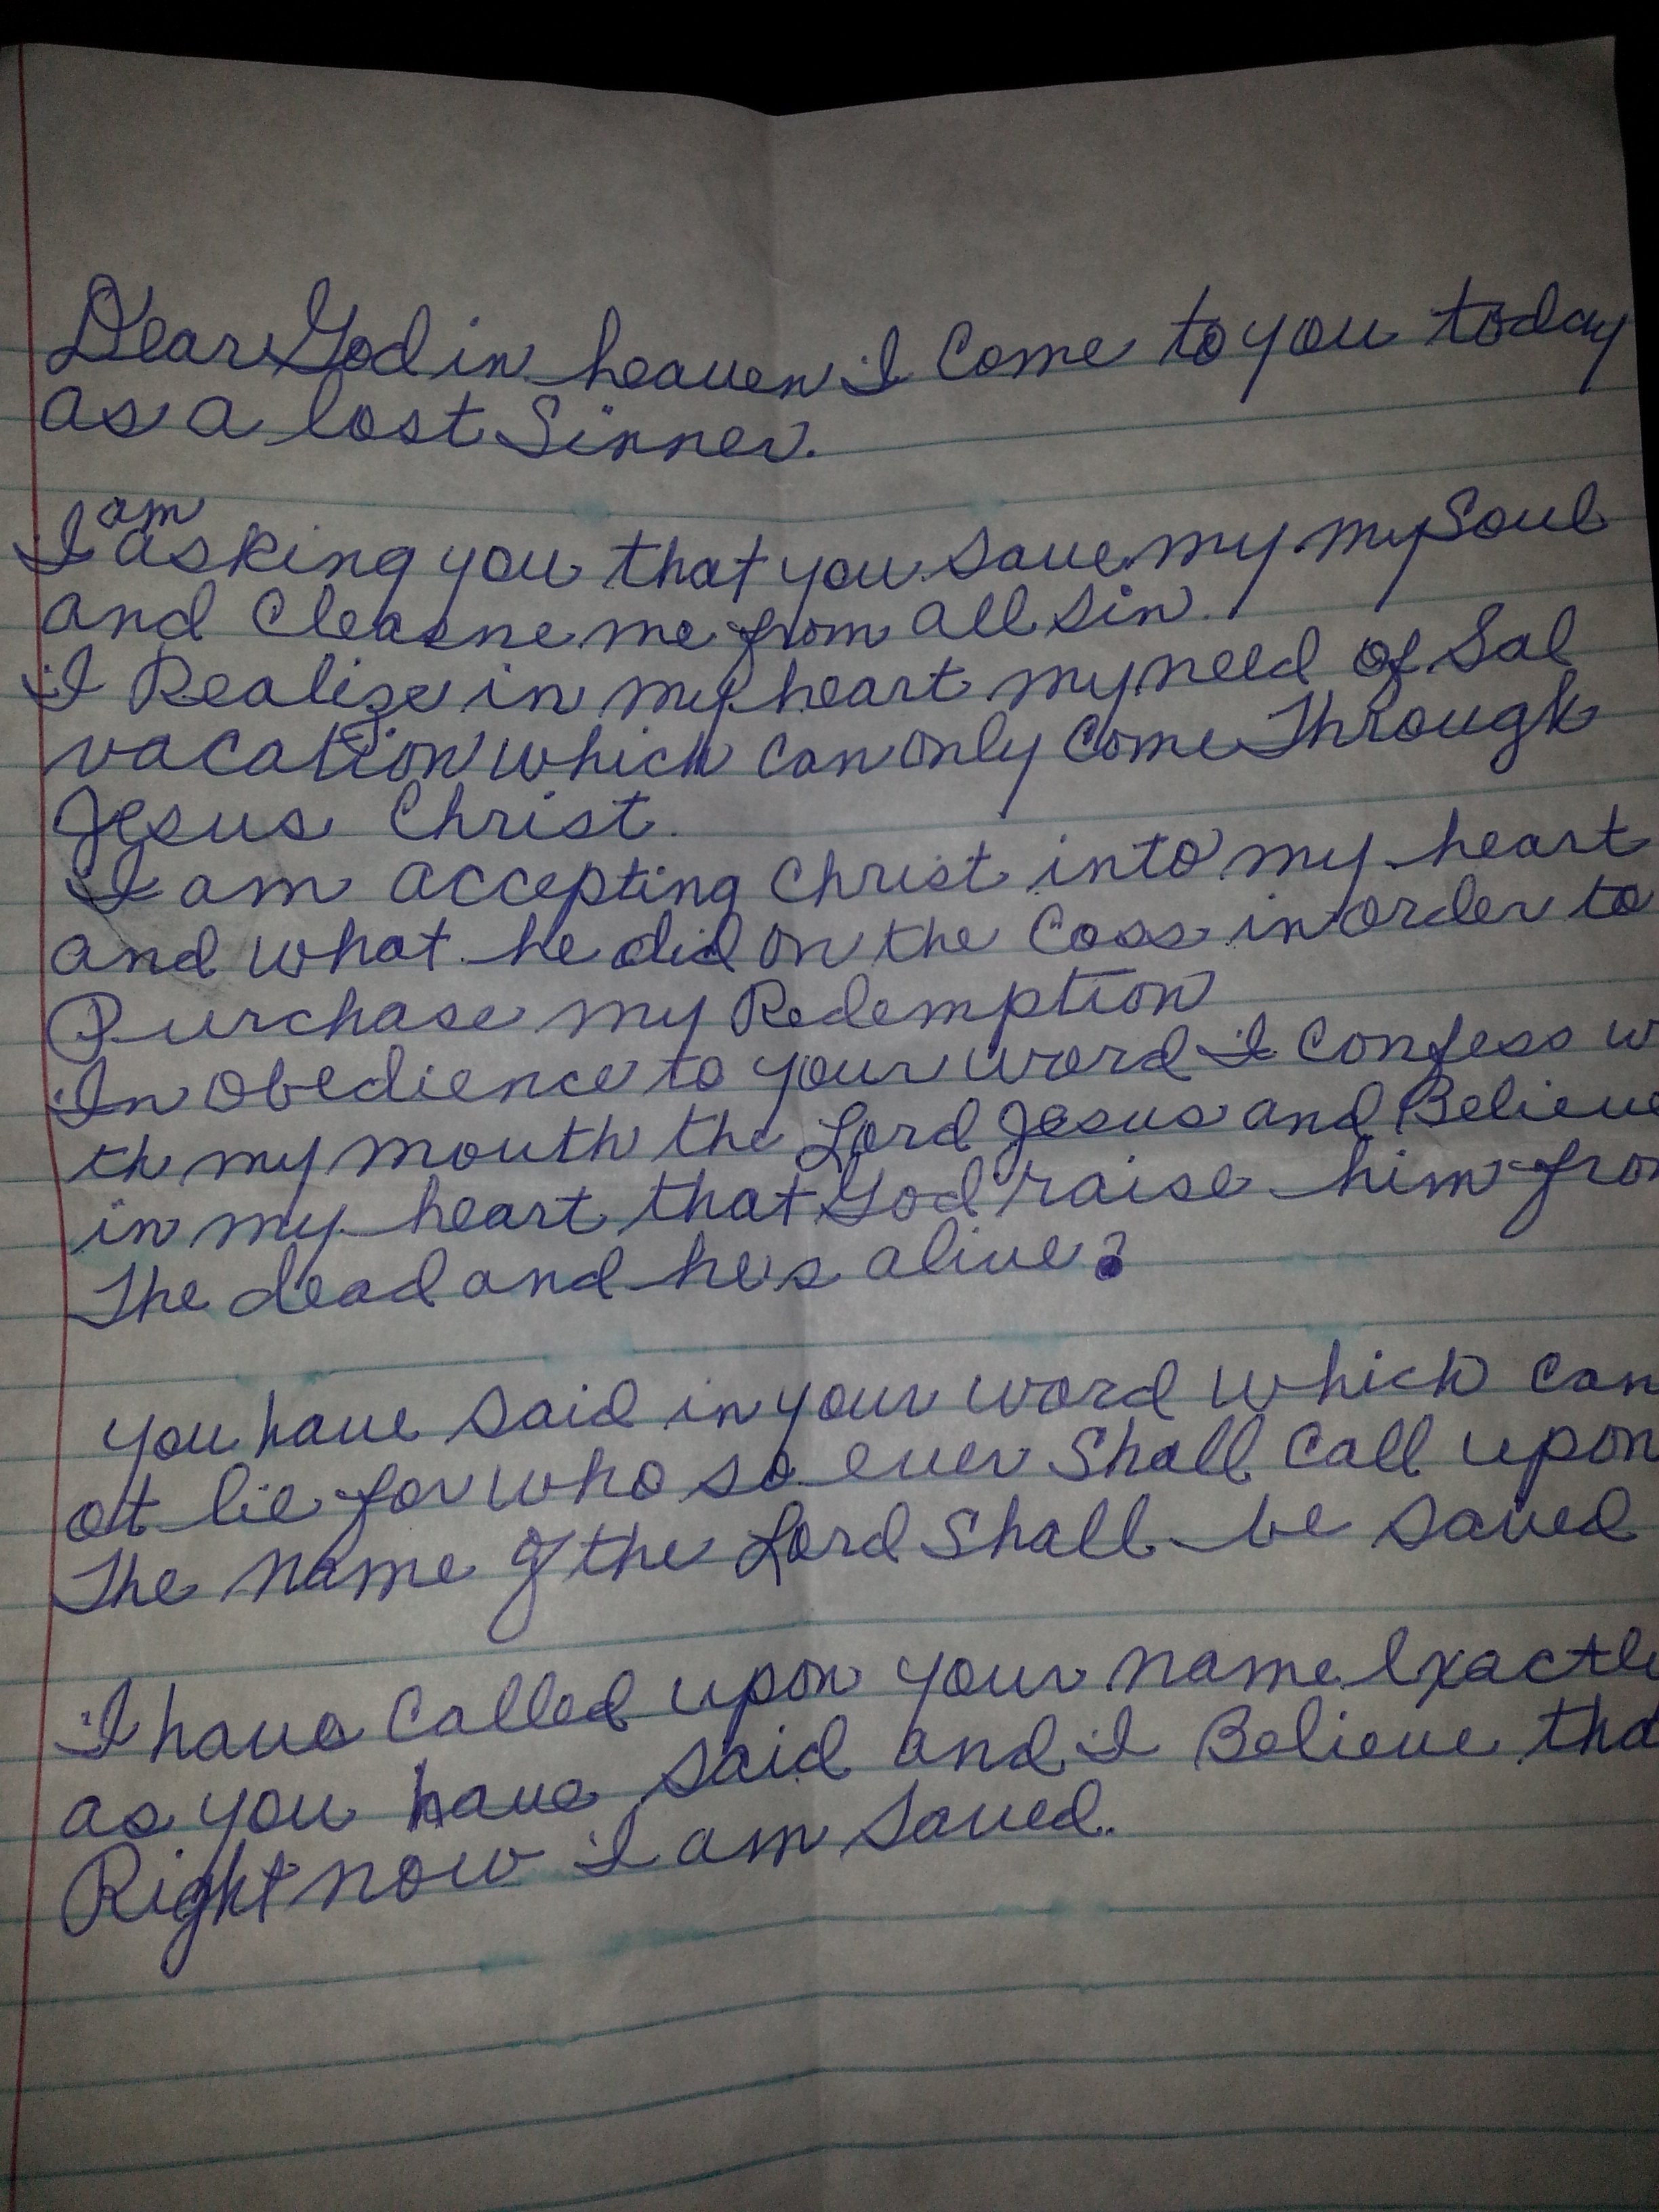 Dear God in heaven I Come to you today
as a lost Sinner.
I am asking you that you save my my Soul
and Cleasne me from all sin.
I Realize in my heart my need of Sal
vacation which can only come Through
Jesus Christ.
I am accepting Christ into my heart
and what he did on the Coss in order to
Purchase my Redemption
In obedience to your word I Confess w
th my mouth the Lord Jesus and Believe
in my heart that God raise him from
The dead and he's alive?
you have said in your word which can
ot lie for who so ever Shall Call upon
The name of the Lord Shall be saved
I have Called upon your name Exactle
as you have said and I Believe tha
Right now I am saved.